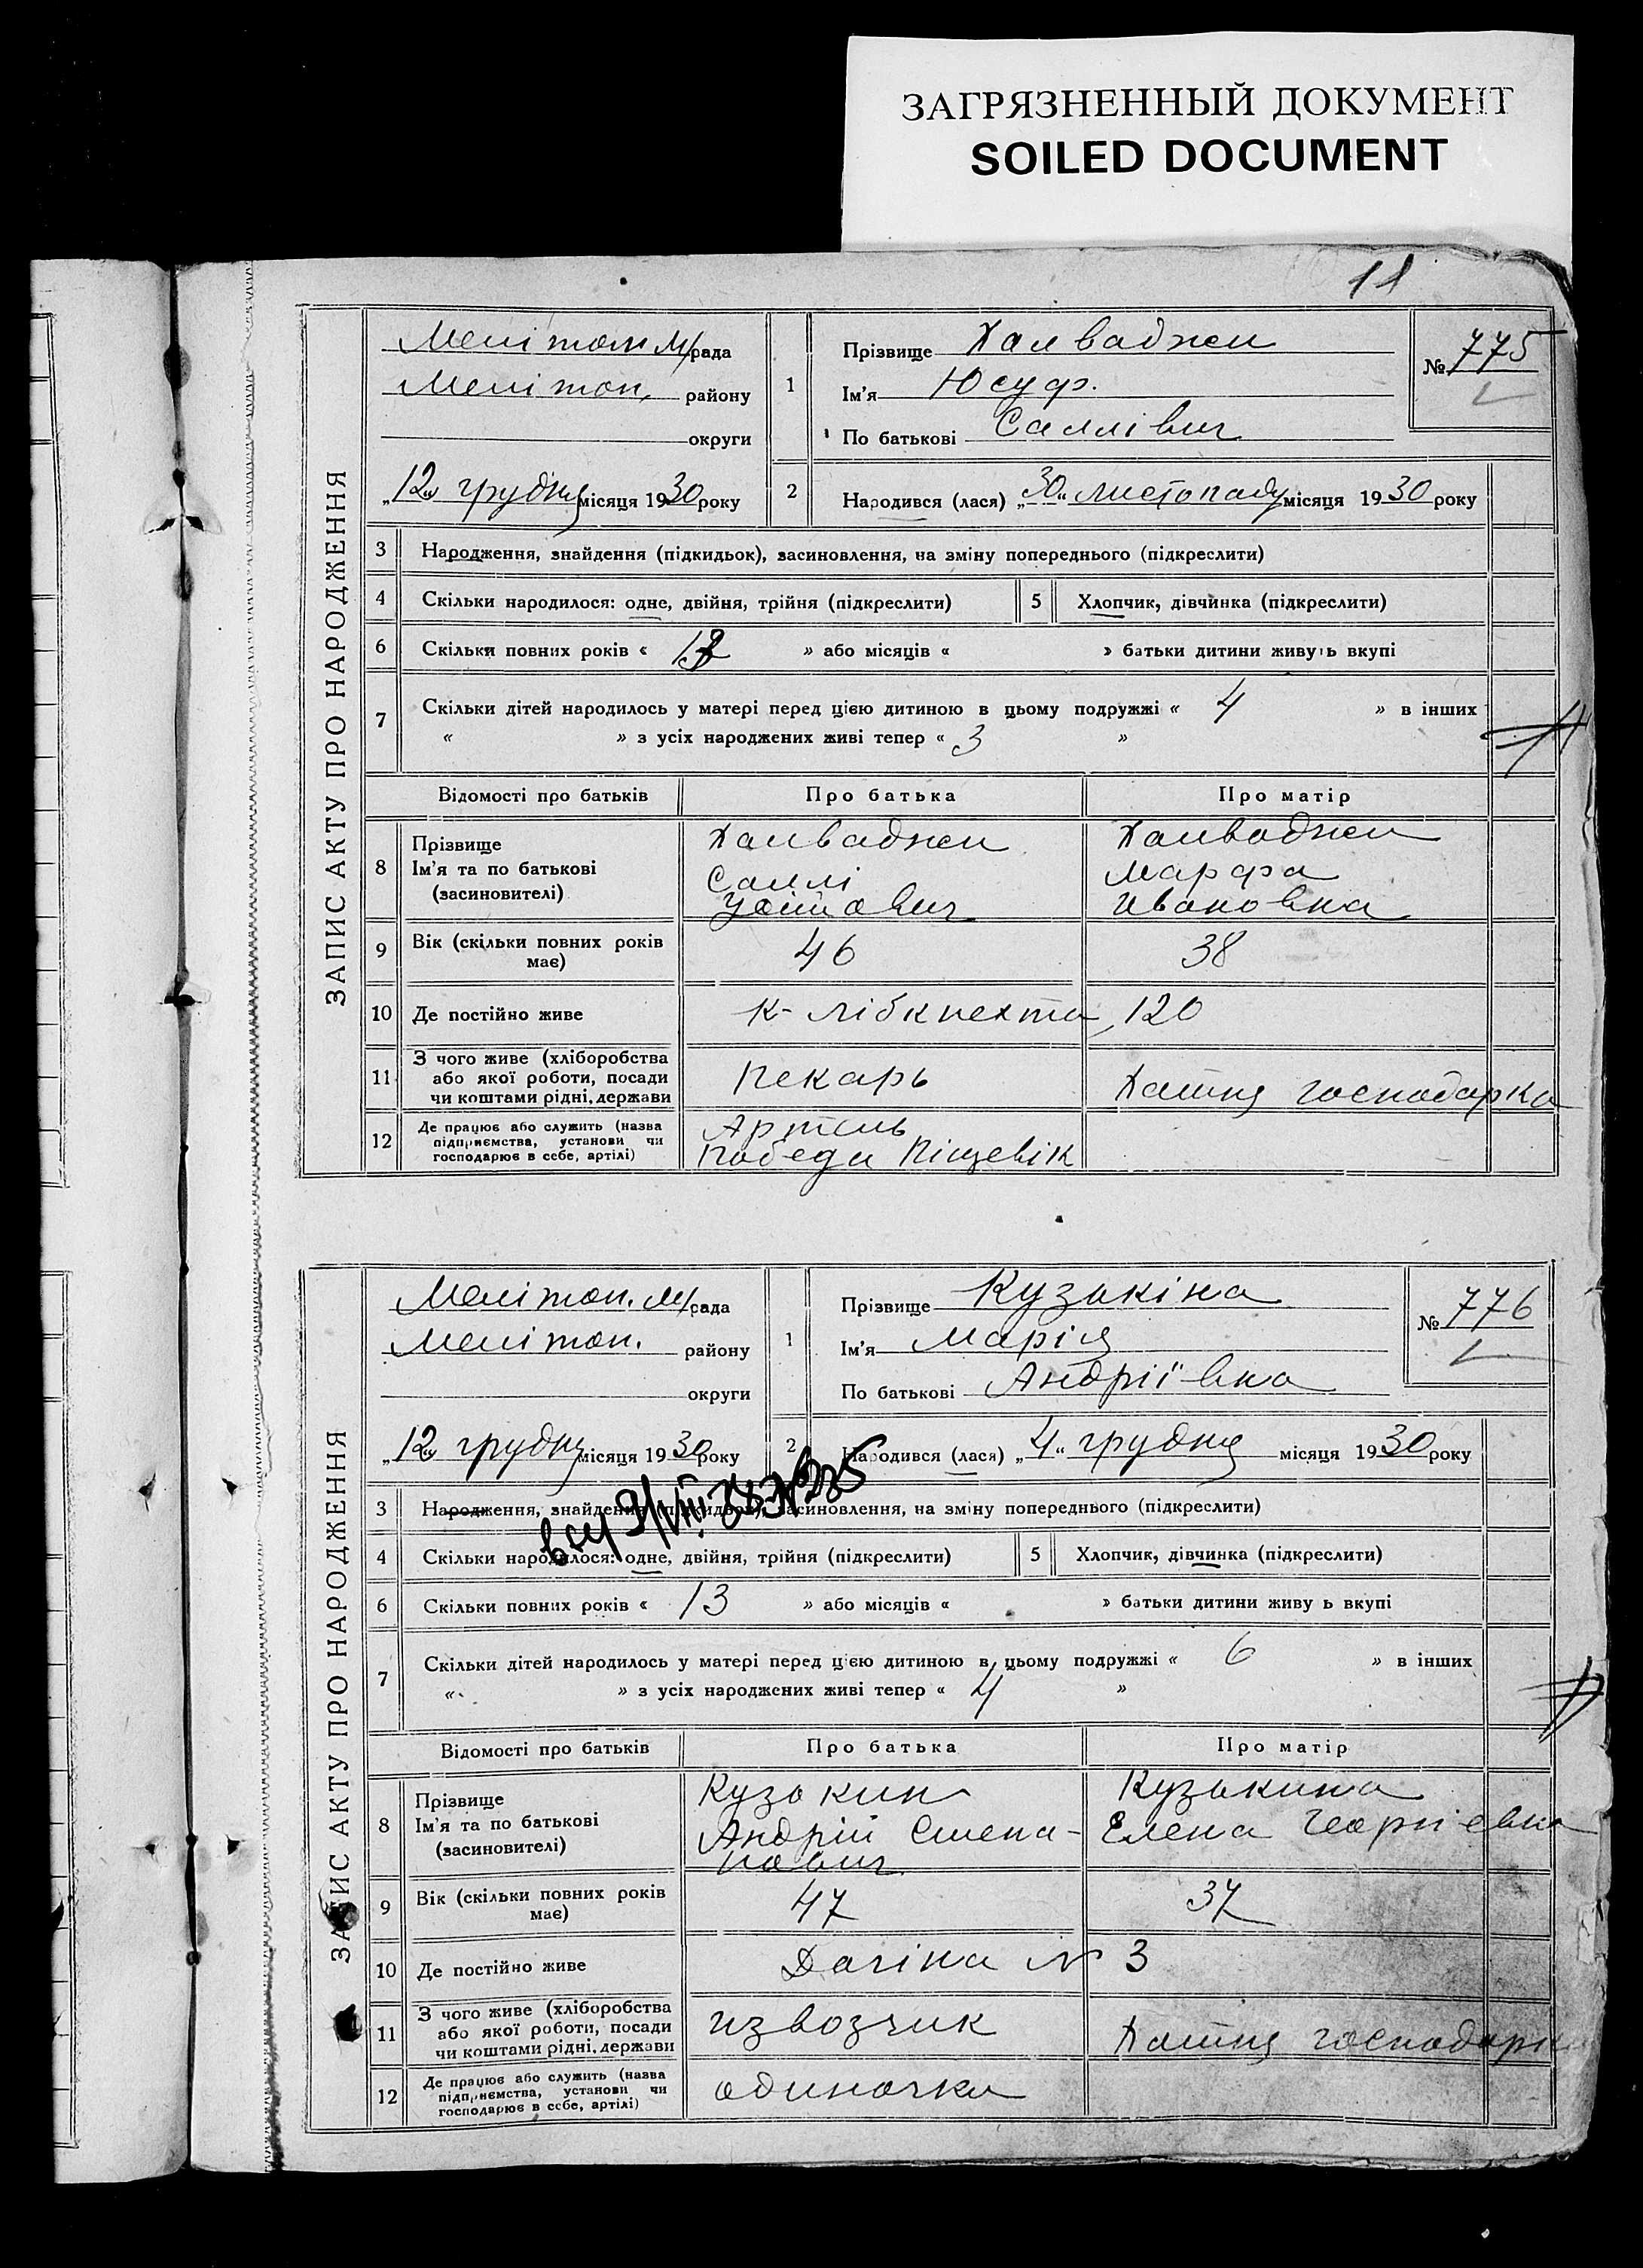 ЗАГРЯЗНЕННЫЙ ДОКУМЕНТ
SOILED DOCUMENT
11
ЗАПИС АКТУ ПРО НАРОДЖЕННЯ
Мелітоп. М/рада
Мелітоп. району
округи
„12“ грудня місяця 1930 року
1
Прізвище Халваджи
Ім'я Юсуф.
По батькові Саллівич
№ 775
2
Народився (лася) „30“ листопаду місяця 1930 року
3 Народження, знайдення (підкидьок), засиновлення, на зміну попереднього (підкреслити)
4 Скільки народилося: одне, двійня, трійня (підкреслити) 5 Хлопчик, дівчинка (підкреслити)
6 Скільки повних років « » або місяців « » батьки дитини живуть вкупі
7 Скільки дітей народилось у матері перед цією дитиною в цьому подружжі « 4 » в інших
« » з усіх народжених живі тепер « 3 »
Відомості про батьків Про батька Про матір
8 Прізвище Ім'я та по батькові (засиновителі)
Халваджи Саллі
Халваджи Марфа Ивановна
9 Вік (скільки повних років має) 46 38
10 Де постійно живе К-Лібкнехта, 120
11 З чого живе (хліборобства або якої роботи, посади чи коштами рідні, держави Пекарь Хатня господарка
12 Де працює або служить (назва підприємства, установи чи господарює в себе, артілі) Артель Победа Піщевік
ЗАПИС АКТУ ПРО НАРОДЖЕННЯ
Мелітоп. М/рада
Мелітоп. району
округи
„12“ грудня місяця 1930 року
1
Прізвище Кузькіна
Ім'я Марія
По батькові Андріївна
№ 776
2
Народився (лася) „4“ грудня місяця 1930 року
3 Народження, знайдення (підкидьок), засиновлення, на зміну попереднього (підкреслити)
4 Скільки народилося: одне, двійня, трійня (підкреслити) 5 Хлопчик, дівчинка (підкреслити)
6 Скільки повних років « 13 » або місяців « » батьки дитини живу ь вкупі
7 Скільки дітей народилось у матері перед цією дитиною в цьому подружжі « 6 » в інших
« » з усіх народжених живі тепер « 4 »
Відомості про батьків Про батька Про матір
8 Прізвище Ім'я та по батькові (засиновителі)
Кузькин Андрій Степанович
Кузькина Елена Георгіевна
9 Вік (скільки повних років має) 47 37
10 Де постійно живе № 3
11 З чого живе (хліборобства або якої роботи, посади чи коштами рідні, держави извозчик Хатня господарка
12 Де працює або служить (назва підприємства, установи чи господарює в себе, артілі) одиночка